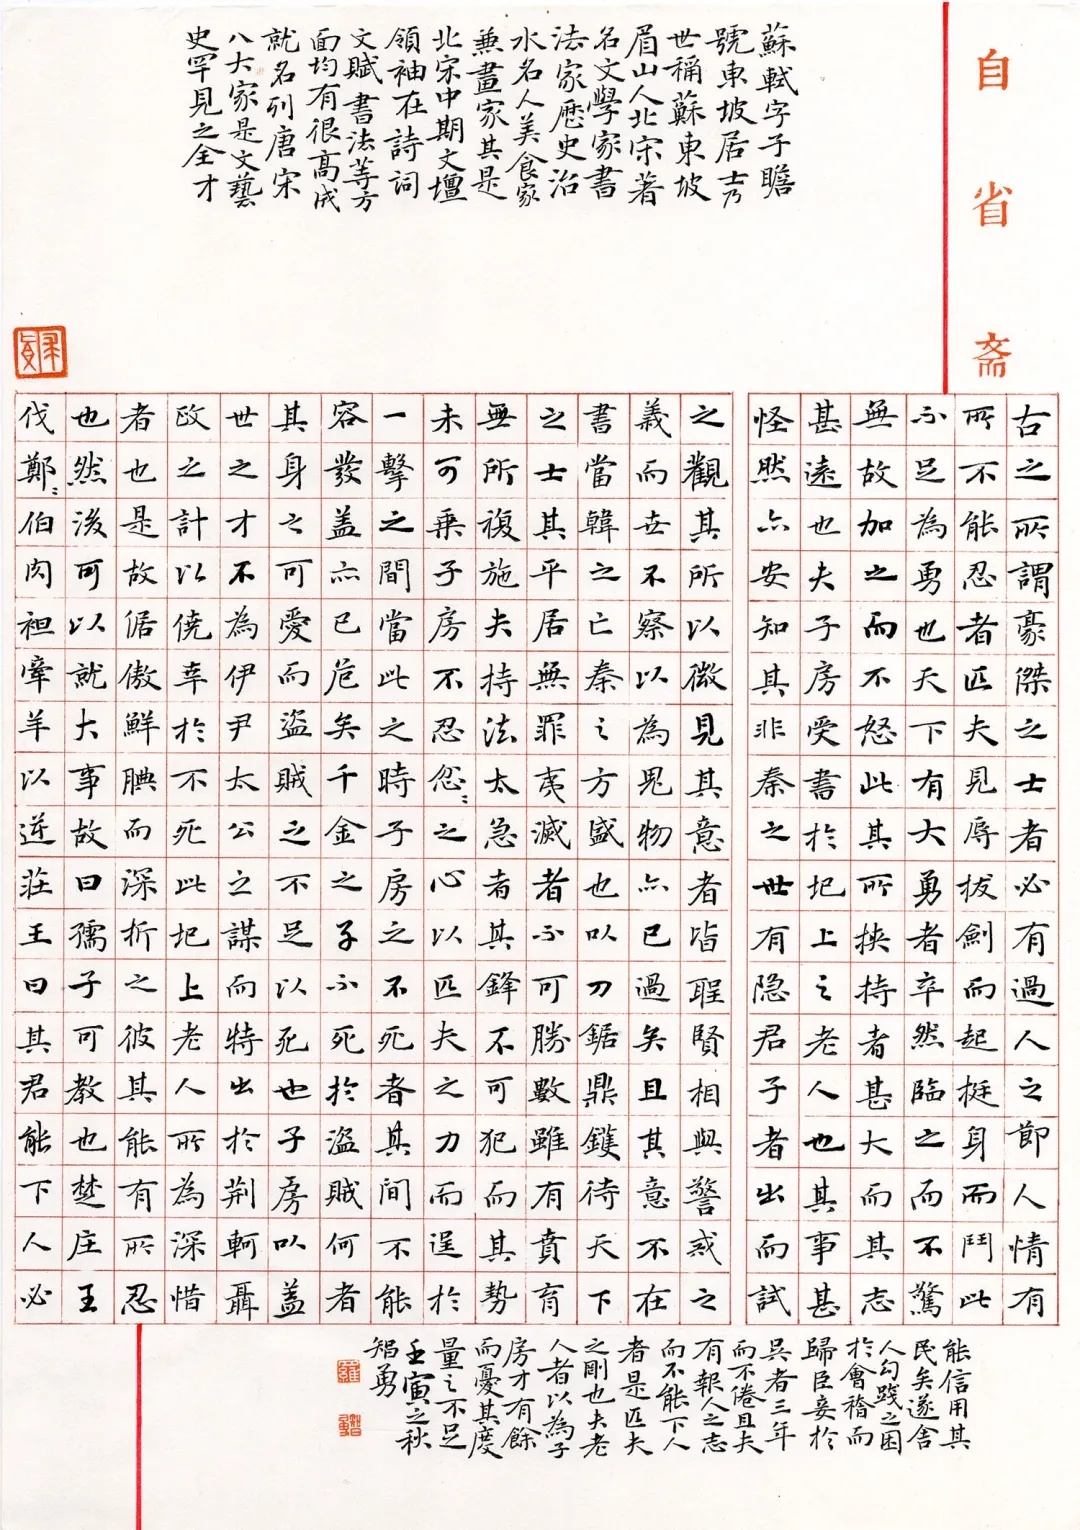 自省斋
蘇軾字子瞻
號東坡居士乃
世稱蘇東坡
眉山人北宋著
名文學家書
法家歷史治
水名人美食家
兼畫家其是
北宋中期文壇
領袖在詩詞
文賦書法等方
面均有很高成
就名列唐宋
八大家是文藝
史罕見之全才
古之所謂豪傑之士者必有過人之節人情有
所不能忍者匹夫見辱拔劍而起挺身而鬥此
不足為勇也天下有大勇者卒然臨之而不驚
無故加之而不怒此其所挾持者甚大而其志
甚遠也夫子房受書於圯上之老人也其事甚
怪然亦安知其非秦之世有隐君子者出而試
之觀其所以微見其意者皆聖賢相與警戒之
義而世不察以為鬼物亦已過矣且其意不在
書當韓之亡秦之方盛也以刀鋸鼎鑊待天下
之士其平居無罪夷滅者不可勝數雖有賁育
無所複施夫持法太急者其鋒不可犯而其勢
未可乘子房不忍忿〻之心以匹夫之力而逞於
一擊之間當此之時子房之不死者其间不能
容發盖亦已危矣千金之子不死於盜賊何者
其身之可愛而盜賊之不足以死也子房以盖
世之才不為伊尹太公之謀而特出於荆軻聶
政之計以僥幸於不死此圯上老人所為深惜
者也是故倨傲鮮腆而深折之彼其能有所忍
也然後可以就大事故曰孺子可教也楚庄王
伐鄭〻伯肉袒牽羊以逆莊王曰其君能下人必
能信用其
民矣遂舍
人勾踐之困
於會稽而
歸臣妾於
吳者三年
而不倦且夫
有報人之志
而不能下人
者是匹夫
之剛也夫老
人者以為子
房才有餘
而憂其度
量之不足
壬寅之秋
智勇